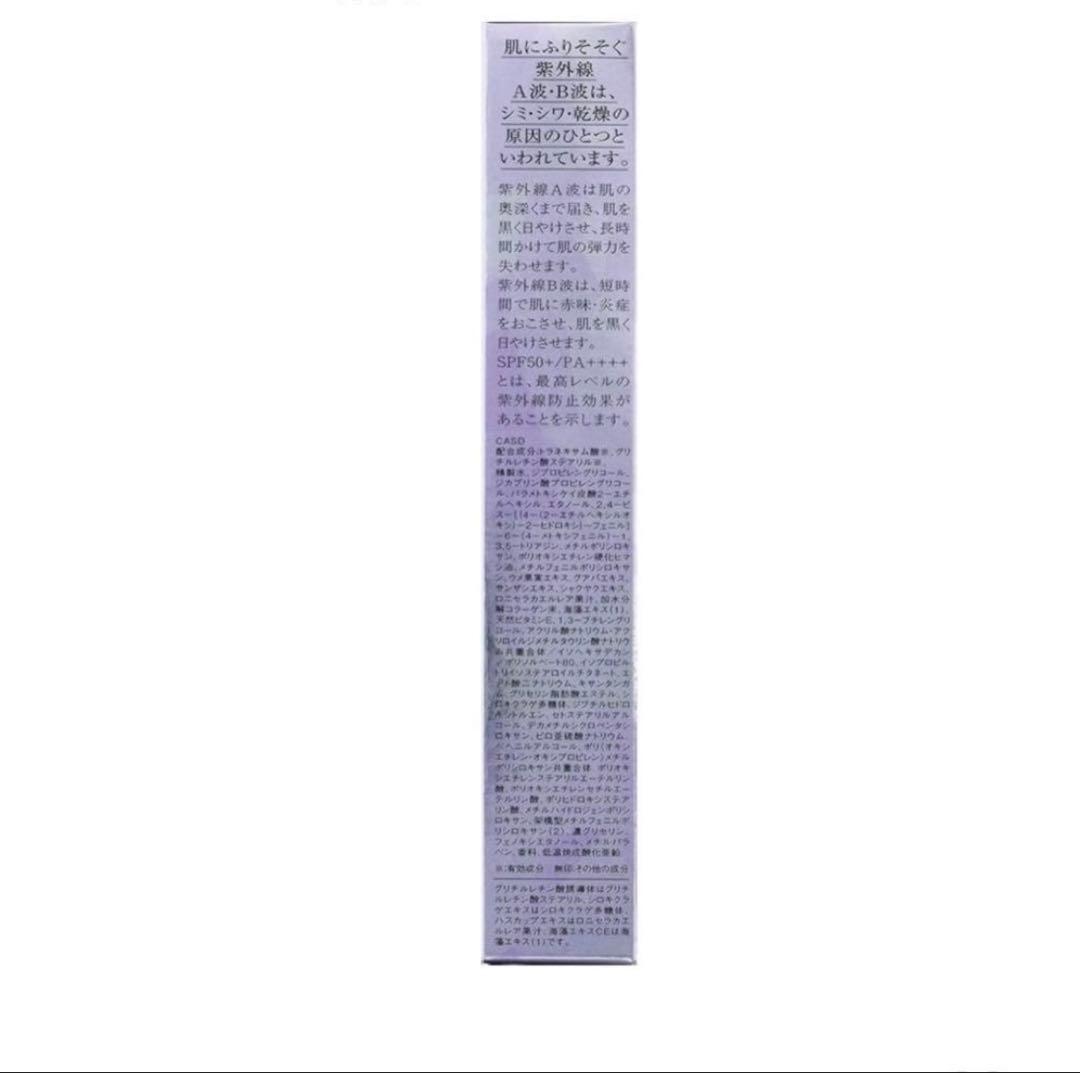 肌にふりそそぐ
紫外線
A波・B波は、
シミ・シワ・乾燥の
原因のひとつと
いわれています。
紫外線A波は肌の
奥深くまで届き、肌を
黒く日やけさせ、長時
間かけて肌の弾力を
失わせます。
紫外線B波は、短時
間で肌に赤味・炎症
をおこさせ、肌を黒く
日やけさせます。
SPF50+/PA++++
とは、最高レベルの
紫外線防止効果が
あることを示します。
CASD
配合成分:トラネキサム酸※、グリ
チルレチン酸ステアリル※、
精製水、ジプロピレングリコール、
ジカプリン酸プロピレングリコー
ル、パラメトキシケイ皮酸2-エチ
ルヘキシル、エタノール、2,4-ビ
ス-[{4-(2-エチルヘキシルオ
キシ)-2-ヒドロキシ}-フェニル]
-6-(4-メトキシフェニル)-1,
3,5-トリアジン、メチルポリシロキ
サン、ポリオキシエチレン硬化ヒマ
シ油、メチルフェニルポリシロキサ
ン、ウメ果実エキス、グアバエキス、
サンザシエキス、シャクヤクエキス、
ロニセラカエルレア果汁、加水分
解コラーゲン末、海藻エキス(1)、
天然ビタミンE、1,3-ブチレングリ
コール、アクリル酸ナトリウム・アク
リロイルジメチルタウリン酸ナトリウ
ム共重合体/イソヘキサデカン
/ポリソルベート80、イソプロピル
トリイソステアロイルチタネート、エ
デト酸二ナトリウム、キサンタンガ
ム、グリセリン脂肪酸エステル、シ
ロキクラゲ多糖体、ジブチルヒドロ
キシトルエン、セトステアリルアル
コール、デカメチルシクロペンタシ
ロキサン、ピロ亜硫酸ナトリウム、
ベヘニルアルコール、ポリ(オキシ
エチレン・オキシプロピレン)メチル
ポリシロキサン共重合体、ポリオキ
シエチレンステアリルエーテルリン
酸、ポリオキシエチレンセチルエー
テルリン酸、ポリヒドロキシステア
リン酸、メチルハイドロジェンポリシ
ロキサン、架橋型メチルフェニルポ
リシロキサン(2)、濃グリセリン、
フェノキシエタノール、メチルパラ
ベン、香料、低温焼成酸化亜鉛
※:有効成分 無印:その他の成分
グリチルレチン酸誘導体はグリチ
ルレチン酸ステアリル、シロキクラ
ゲエキスはシロキクラゲ多糖体、
ハスカップエキスはロニセラカエ
ルレア果汁、海藻エキスCEは海
藻エキス(1)です。